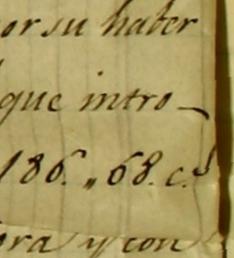 or su haber
que intro_
186. „ 68. c.s
ora y con